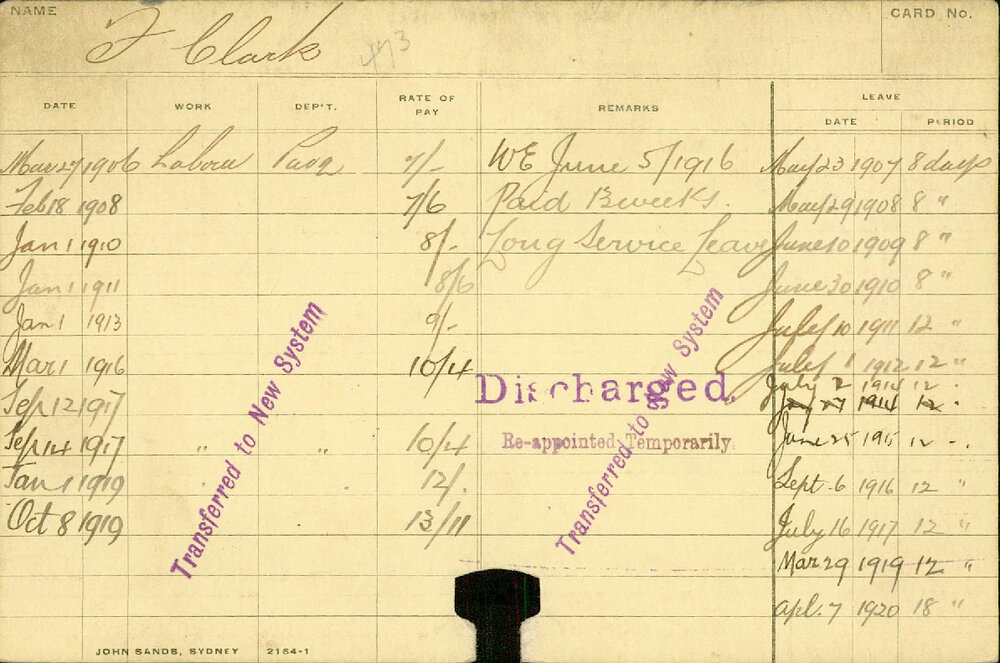 NAME CARD No.
F Clark 473
DATE WORK DEP'T. RATE OF PAY REMARKS LEAVE
DATE PERIOD
Mar 27 1906 Labour Pavg 7/- WE June 5/1916 May 23 1907 8 days
Feb 18 1908 7/6 Paid 13 weeks. May 29 1908 8 "
Jan 1 1910 8/- Long Service Leave June 10 1909 8 "
Jan 1 1911 8/6 June 30 1910 8 "
Jan 1 1913 9/- July 10 1911 12 "
Mar 1 1916 10/4 July 1 1912 12 "
July 2 1914 12 "
Sep 12 1917 Discharged. 1914 12 "
Sep 14 1917 " " 10/4 Re-appointed Temporarily. June 25 1915 12 "
Jan 1 1919 12/. Sept. 6 1916 12 "
Oct 8 1919 13/11 July 16 1917 12 "
Mar 29 1919 12 "
Apl. 7 1920 18 "
Transferred to New System
Transferred to New System
JOHN SANDS, SYDNEY 2154-1